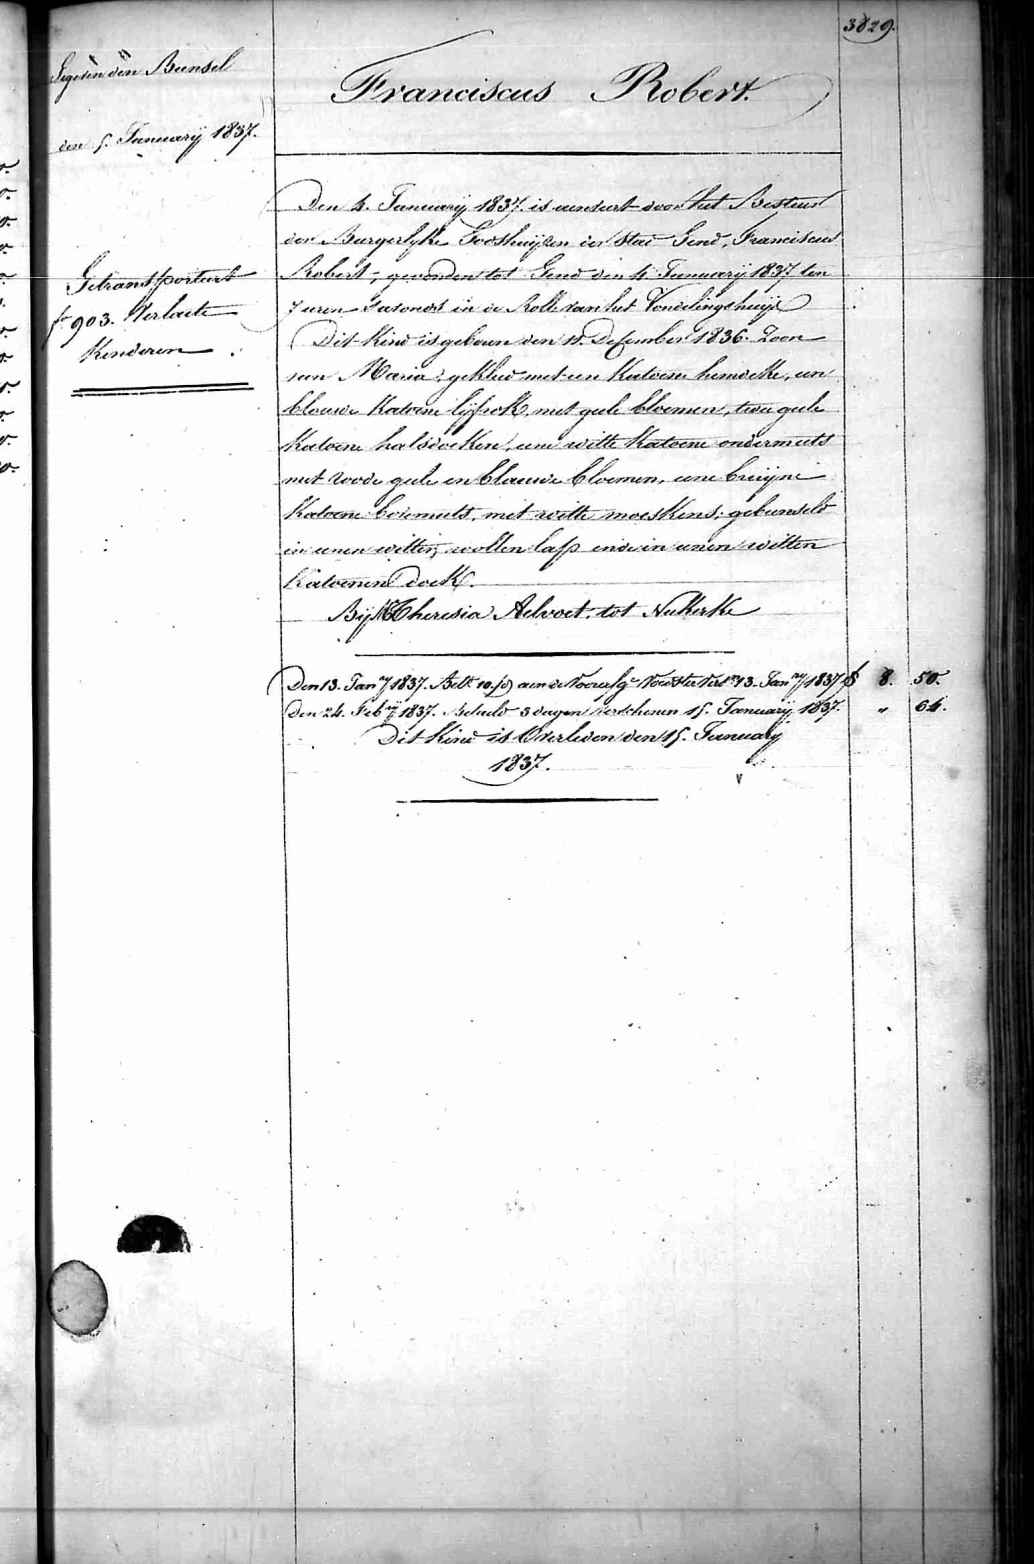 3829.
Gegeven den Bunsel
den 5. Januarij 1837.
Getransporteert
fo 903. Verlaete
Kinderen
Franciscus Robert.
Den 4. Januarij 1837. is aenveert door het Bestuur
der Burgerlyke Godshuijzen der stad Gend, Franciscus
Robert, gevonden tot Gend den 4 Januarij 1837 ten
7 uren s'avonds in de Rolle van het Vondelingshuijs
Dit Kind is geboren den 15. Desember 1836. Zoon
van Maria; gekleed met een Katoene hemdeke, een
blauwe Katoene lijfrok, met geele bloemen, twee geele
Katoene halsdoeken, eene witte Katoene ondermuts
met roode geele en blauwe bloemen, eene bruijne
Katoene bovemuts, met witte moeskens; gebunseld
in eenen witten wollen lap ende in eenen witten
Katoenen doek.
Bij Theresia Aelvoet, tot Nukerke
Den 13. Jany 1837. Bett. 10. fs) aen de Voedster 13. Jany 1837 f 8. 50.
Den 24. Feby 1837. Betaeld 3 dagen verschenen 15. Januarij 1837. " 64.
Dit Kind is Overleden den 15. January
1837.